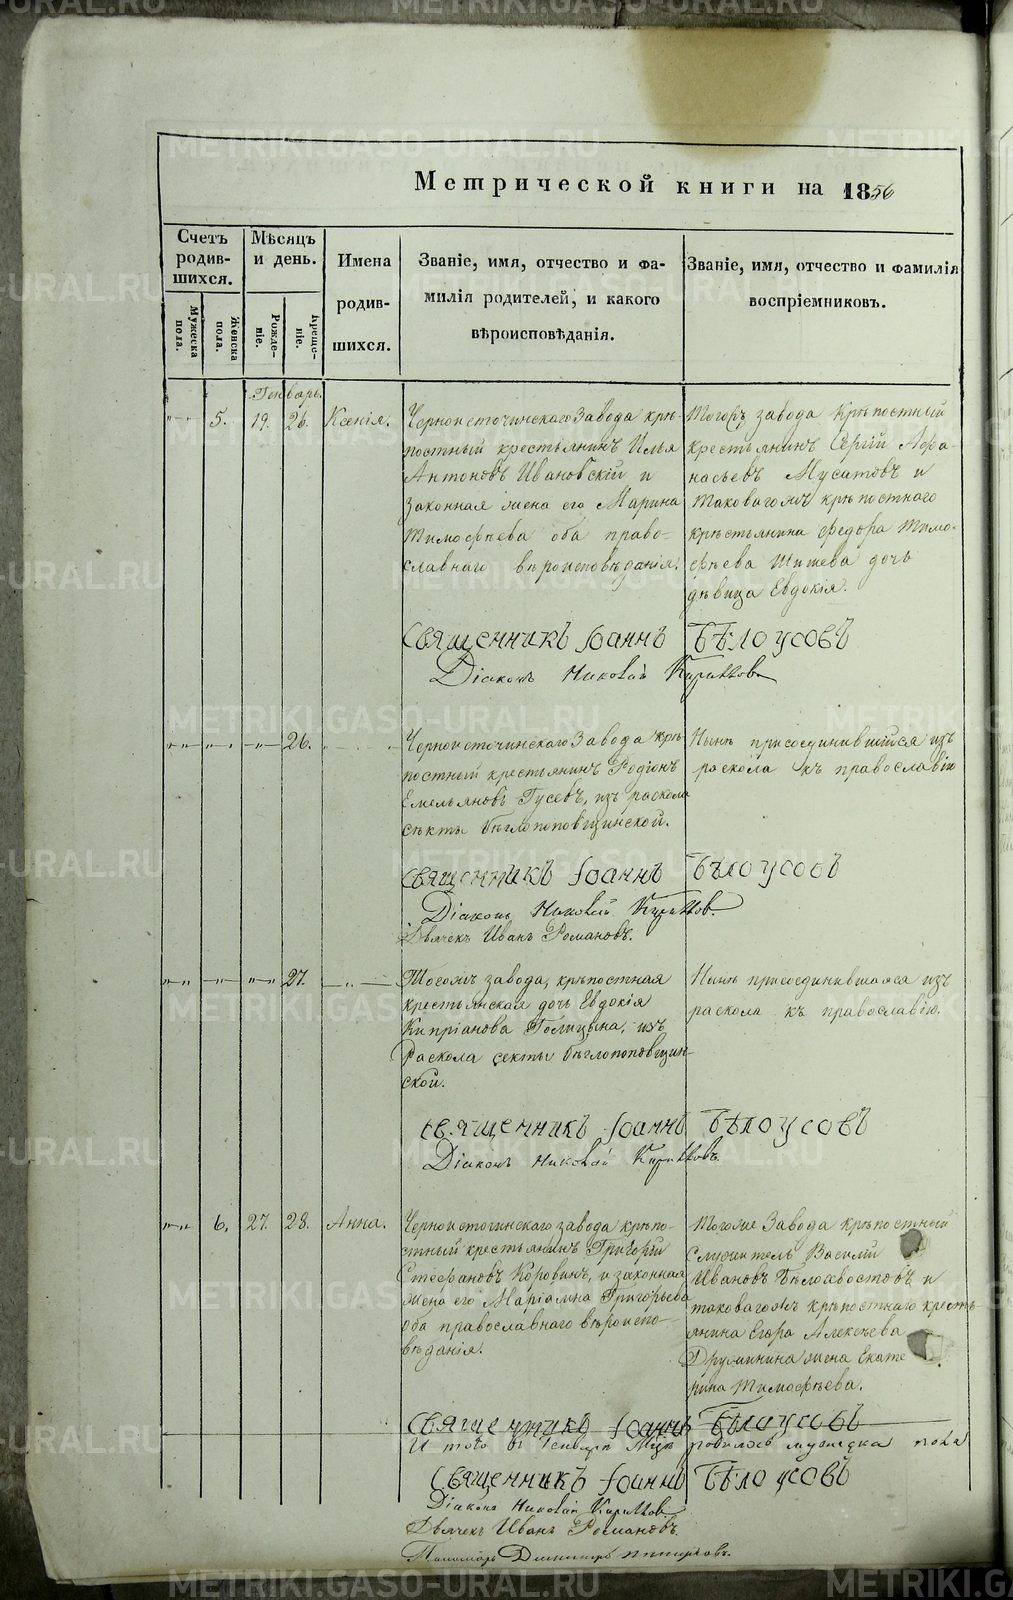 Метрической книги на 1856
Счетъ родив-шихся.
Мѣсяцъ и день.
Имена родив-шихся.
Званіе, имя, отчество и фа-
милія родителей, и какого
вѣроисповѣданія.
Званіе, имя, отчество и фамилія
воспріемниковъ.
Мужеска пола.
Женска пола.
Рожде-ніе.
Креще-ніе.
Генварь.
5. 19. 26. Ксенія.
Черноисточинскаго Завода крѣ-
постный крестьянинъ Илья
Антоновъ Ивановскій и
законная жена его Марина
Тимофѣева оба право-
славнаго вѣроисповѣданія.
Тогожъ завода Крѣпостный
крестьянинъ Сергій Афа-
насьевъ Мусатовъ и
таковагожъ крѣпостнаго
крестьянина Федора Тимо-
фѣева Шишева дочь
дѣвица Евдокія.
Священникъ Іоаннъ Бѣлоусовъ
Діаконъ Николай
26.
Черноисточинскаго Завода крѣ-
постный крестьянинъ Родіонъ
Емельяновъ Гусевъ, изъ раскола
секты бѣглопоповщинской.
Нынѣ присоединившійся изъ
раскола къ православію
Священникъ Іоаннъ Бѣлоусовъ
Діаконъ Николай
Дьячекъ Иванъ Романовъ.
27.
Тогожъ завода, крѣпостная
крестьянская дочь Евдокія
Кипріанова Голицына, изъ
раскола секты бѣглопоповщин-
ской.
Нынѣ присоединившаяся изъ
раскола къ православію.
Священникъ Іоаннъ Бѣлоусовъ
Діаконъ Николай
6. 27. 28. Анна.
Черноисточинскаго завода крѣпо-
стный крестьянинъ Григорій
Стефановъ Коровинъ, и законная
жена его Маріамна Григорьева
оба православнаго вѣроиспо-
вѣданія.
Тогоже Завода крѣпостный
служитель Василій
Ивановъ Бѣлохвостовъ и
таковагожъ крѣпостнаго кресть-
янина Егора Алексѣева
Дружинина жена Екате
рина Тимофѣева.
Священникъ Іоаннъ Бѣлоусовъ
И того въ Генварѣ Мцѣ родилось мужеска пола
Священникъ Іоаннъ Бѣлоусовъ
Діаконъ Николай
Дьячекъ Иванъ Романовъ.
Пономарь Димитрій
METRIKI.GASO-URAL.RU